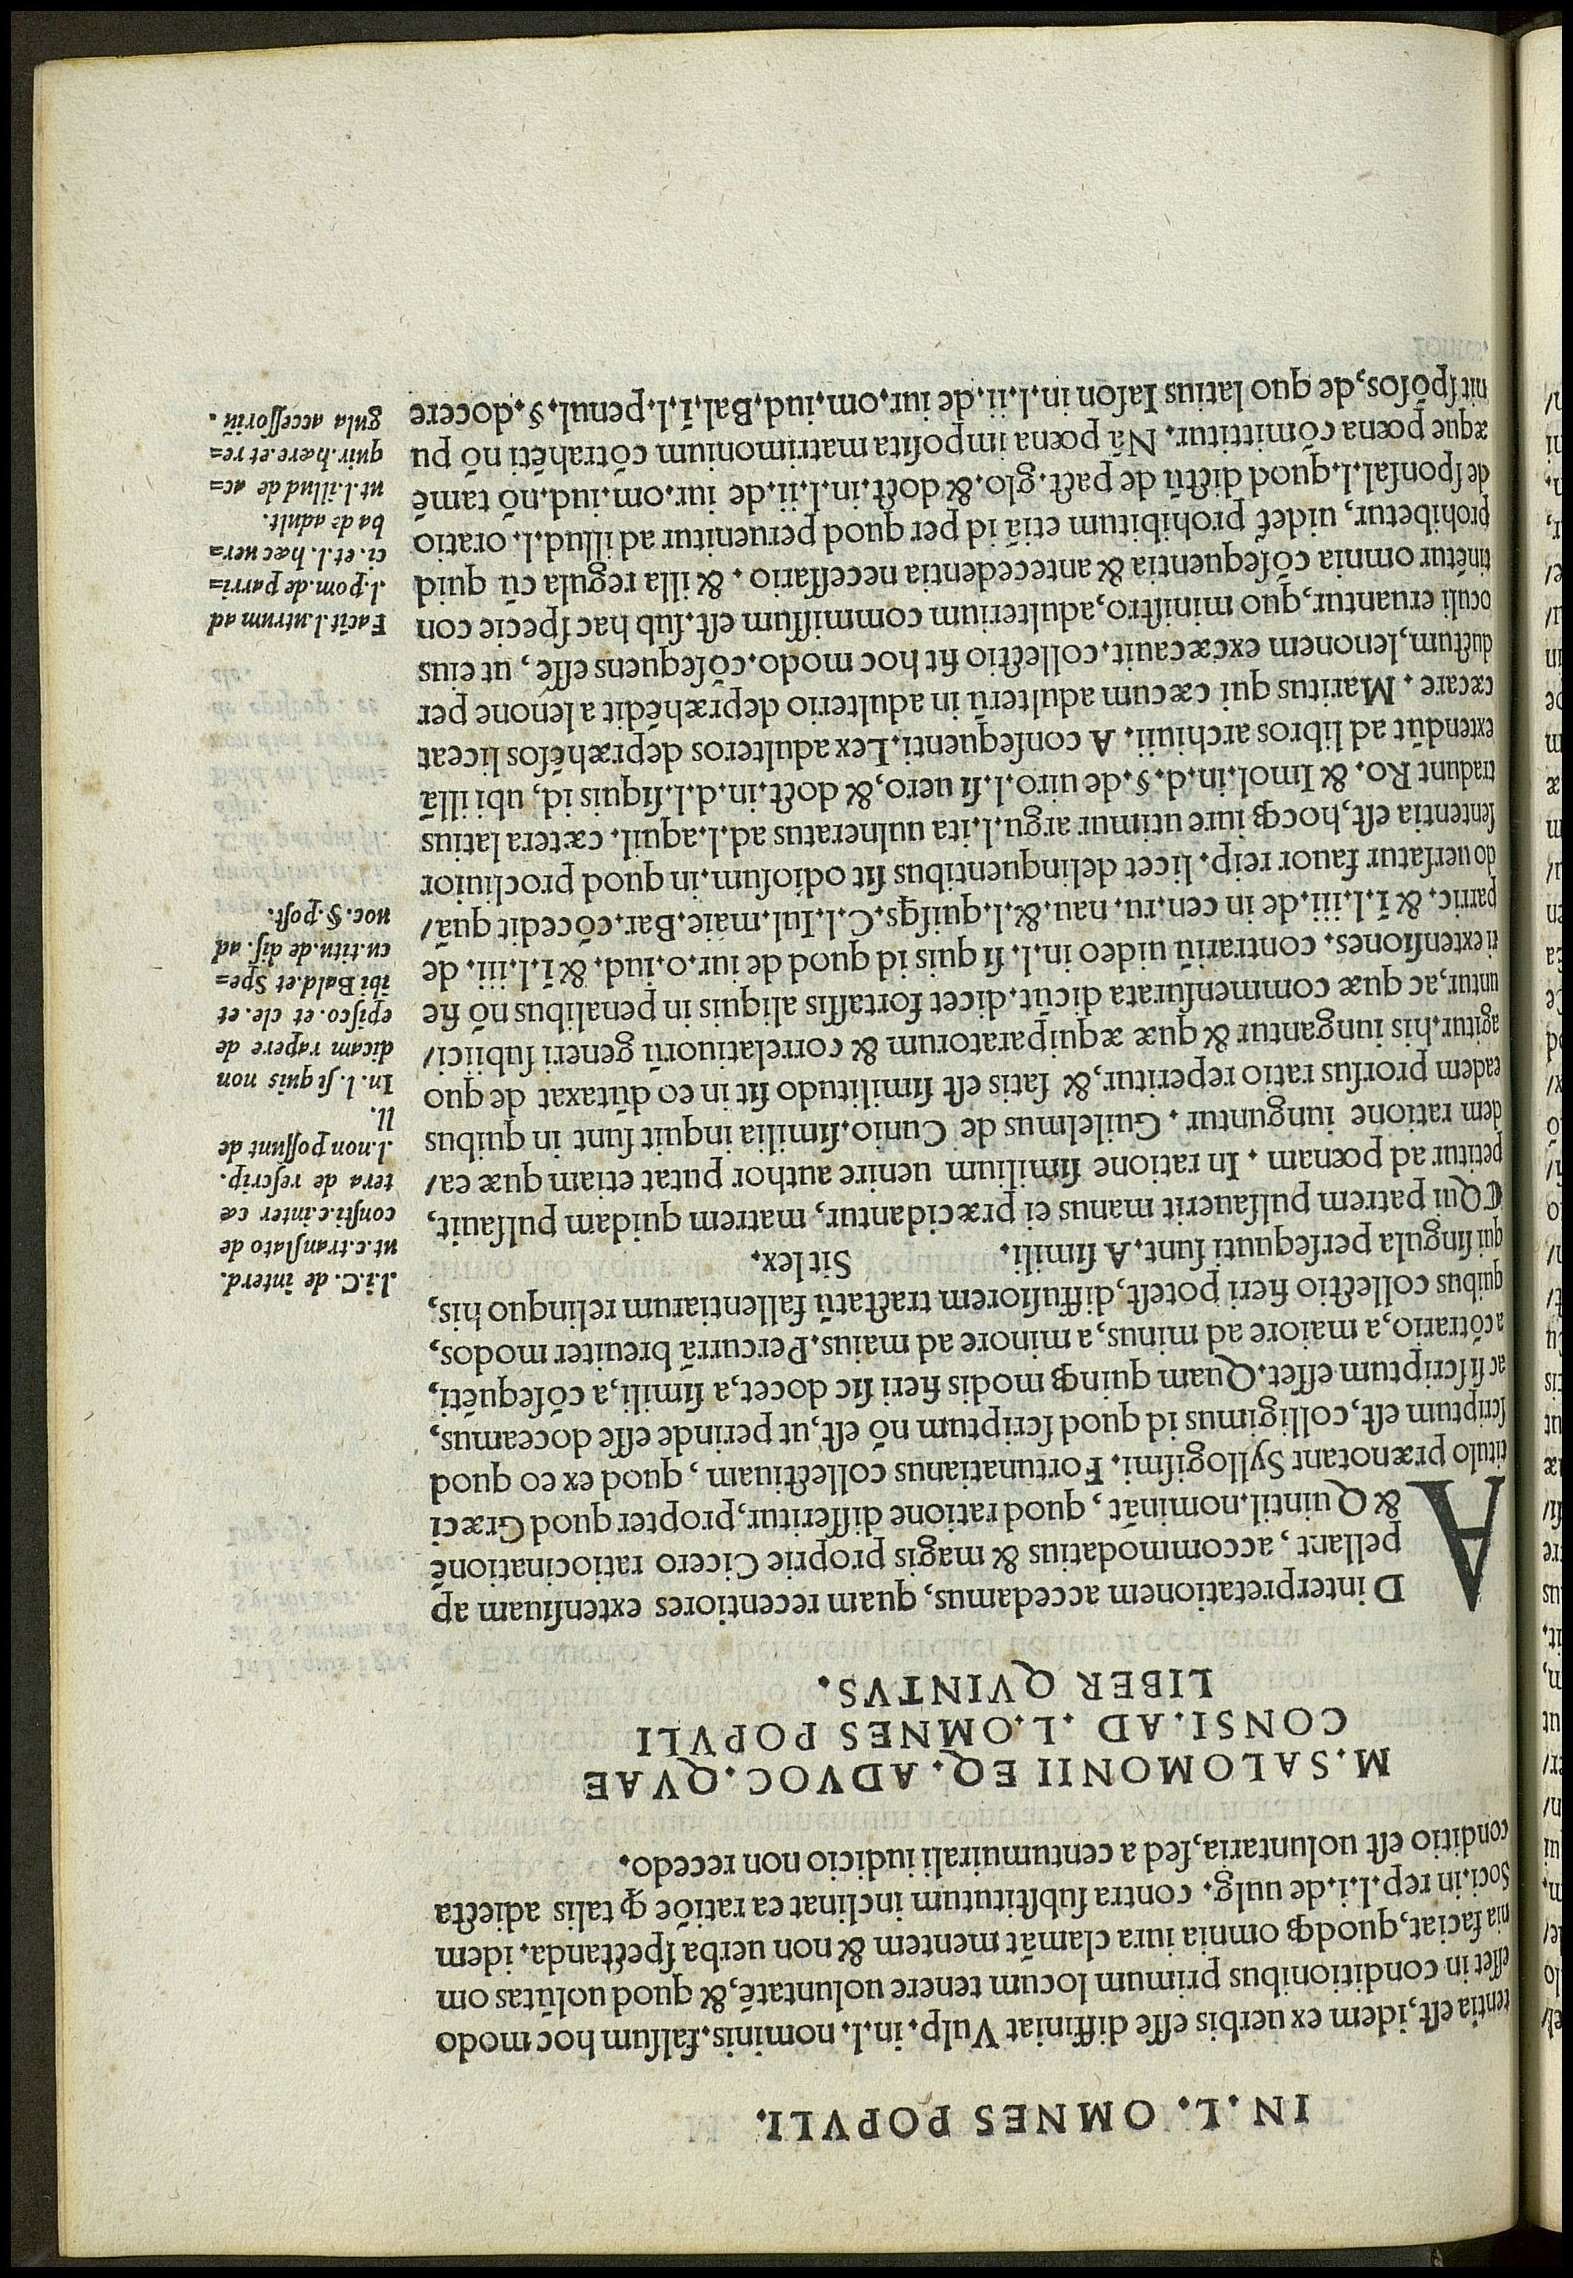 IN. L. OMNES POPVLI.
tentia eſt, idem ex uerbis eſſe diffiniat Vulp. in. l. nominis. falſum hoc modo
eſſet in conditionibus primum locum tenere uoluntatē, & quod uolūtas om
nia faciat, quodꝗ omnia iura clamāt mentem & non uerba ſpectanda. idem
Soci. in rep. l. i. de uulg. contra ſubſtitutum inclinat ea ratiōe ꝙ talis adiecta
conditio eſt uoluntaria, ſed a centumuirali iudicio non recedo.
M. SALOMONII EQ. ADVOC. QVAE
CONSI. AD .L. OMNES POPVLI
LIBER QVINTVS.
AD interpretationem accedamus, quam recentiores extenſiuam ap
pellant, accommodatius & magis proprie Cicero ratiocinationē
& Quintil. nomināt, quod ratione diſſeritur, propter quod Græci
titulo prænotant Syllogiſmi. Fortunatianus collectiuam, quod ex eo quod
ſcriptum eſt, colligimus id quod ſcriptum nō eſt, ut perinde eſſe doceamus,
ac ſi ſcriptum eſſet. Quam quinꝗ modis fieri ſic docet, a ſimili, a cōſequēti,
a cōtrario, a maiore ad minus, a minore ad maius. Percurrā breuiter modos,
quibus collectio fieri poteſt, diffuſiorem tractatū fallentiarum relinquo his,
qui ſingula perſequuti ſunt. A ſimili. Sit lex.
℄Qui patrem pulſauerit manus ei præcidantur, matrem quidam pulſauit,
petitur ad pœnam. In ratione ſimilium uenire author putat etiam quæ ea/
dem ratione iunguntur. Guilelmus de Cunio. ſimilia inquit ſunt in quibus
eadem prorſus ratio reperitur, & ſatis eſt ſimilitudo ſit in eo dūtaxat de quo
agitur. his iungantur & quæ æquiparatorum & correlatiuorū generi ſubiici/
untur, ac quæ commenſurata dicūt. dicet fortaſſis aliquis in penalibus nō fie
ri extenſiones. contrariū uideo in. l. ſi quis id quod de iur. o. iud. & ī. l. iii. de
parric. & ī. l. iii. de in cen. ru. nau. &. l. quiſꝗs. C. l. Iul. maie. Bar. cōcedit quā/
do uerſatur fauor reip. licet delinquentibus ſit odioſum. in quod procliuior
ſententia eſt, hocꝗ iure utimur argu. l. ita uulneratus ad. l. aquil. cætera latius
tradunt Ro. & Imol. in. d. §. de uiro. l. ſi uero, & doct. in. d. l. ſiquis id, ubi illā
extendūt ad libros archiuii. A conſequenti. Lex adulteros dēpræhēſos liceat
cæcare. Maritus qui cæcum adulterū in adulterio depræhēdit a lenone per
ductum, lenonem excæcauit. collectio fit hoc modo. cōſequens eſſe, ut eius
oculi eruantur, quo miniſtro, adulterium commiſſum eſt. ſub hac ſpecie con
tinētur omnia cōſequentia & antecedentia neceſſario. & illa regula cū quid
prohibetur, uidet prohibitum etiā id per quod peruenitur ad illud. l. oratio
de ſponſal. l. quod dictū de pact. glo. & doct. in. l. ii. de iur. om. iud. nō tamē
æque pœna cōmittitur. Nā pœna impoſita matrimonium cōtrahēti nō pu
nit ſpōſos, de quo latius Iaſon in. l. ii. de iur. om. iud. Bal. ī. l. penul. §. docere
.l. i. C. de interd.
ut. c. tranſlato de
conſti. c. inter cæ
tera de reſcrip.
.l. non poſſunt de
ll.
In. l. ſi quis non
dicam rapere de
epiſco. et cle. et
ibi Bald. et Spe=
cu. titu. de diſ. ad
uoc. §. poſt.
Facit. l. utrum ad
.l. pom. de parri=
ci. et. l. hæc uer=
ba de adult.
ut. l. illud de ac=
quir. hære. et re=
gula acceſſoriū.